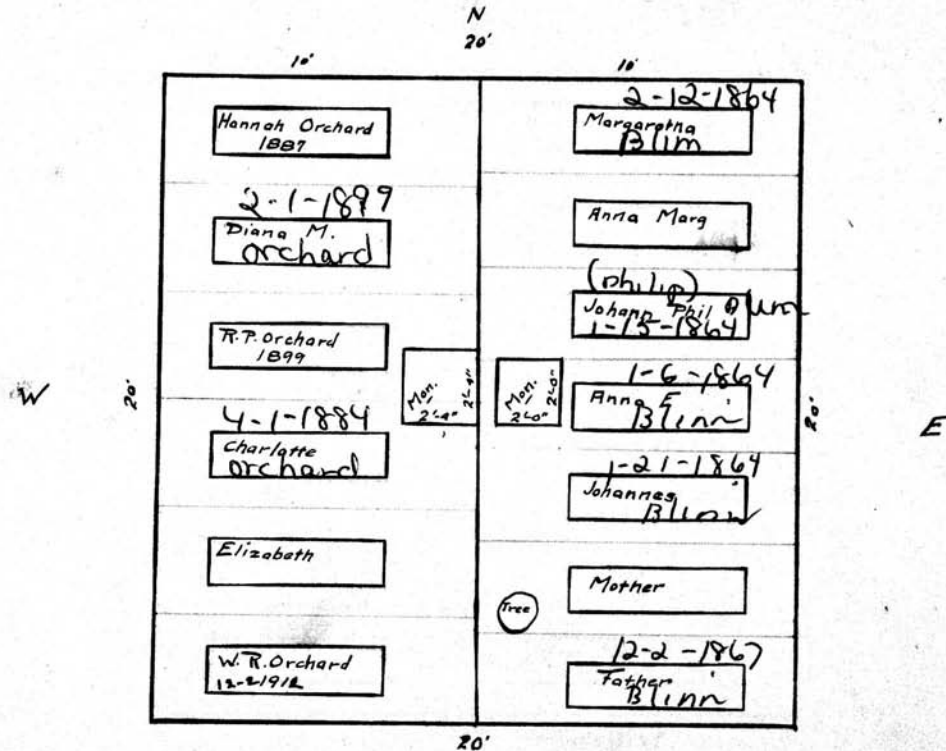 N
20'
10'
10'
Hannah Orchard
1887
2-1-1899
Diana M.
orchard
R.P. Orchard
1899
4-1-1884
Charlotte
orchard
Elizabeth
W.R. Orchard
12-2 1912
Mon.
2'-4" 2'-4"
W
20'
2-12-1864
Margaretha
Blim
Anna Marg
(philip)
Johann Phil
1-15-1864
1-6-1864
Anna E
Blinn
1-21-1864
Johannes
Blinn
Mother
12-2-1867
Father
Blinn
Mon.
2'-0" 2'-0"
Tree
20'
E
20'